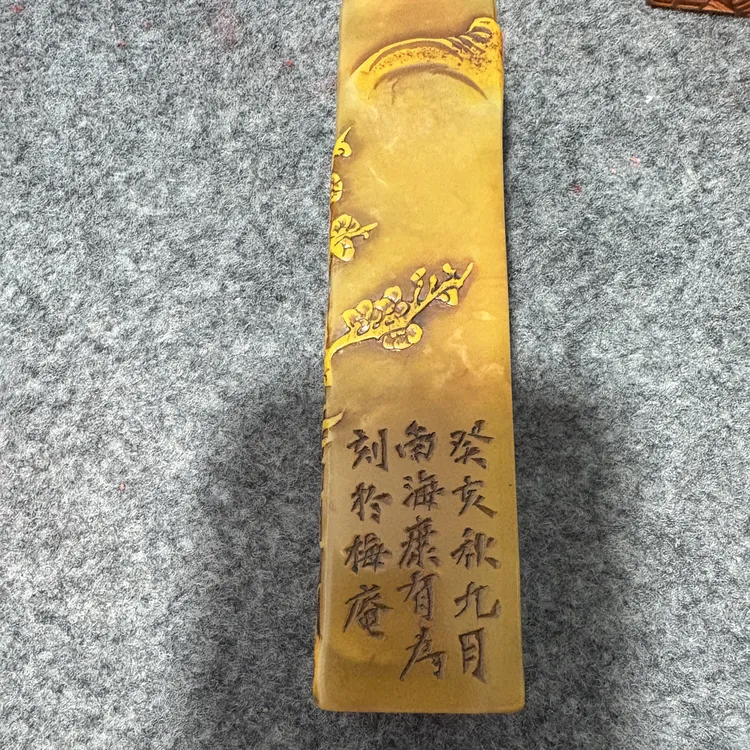 癸亥秋九月
南海康有为
刻於梅庵